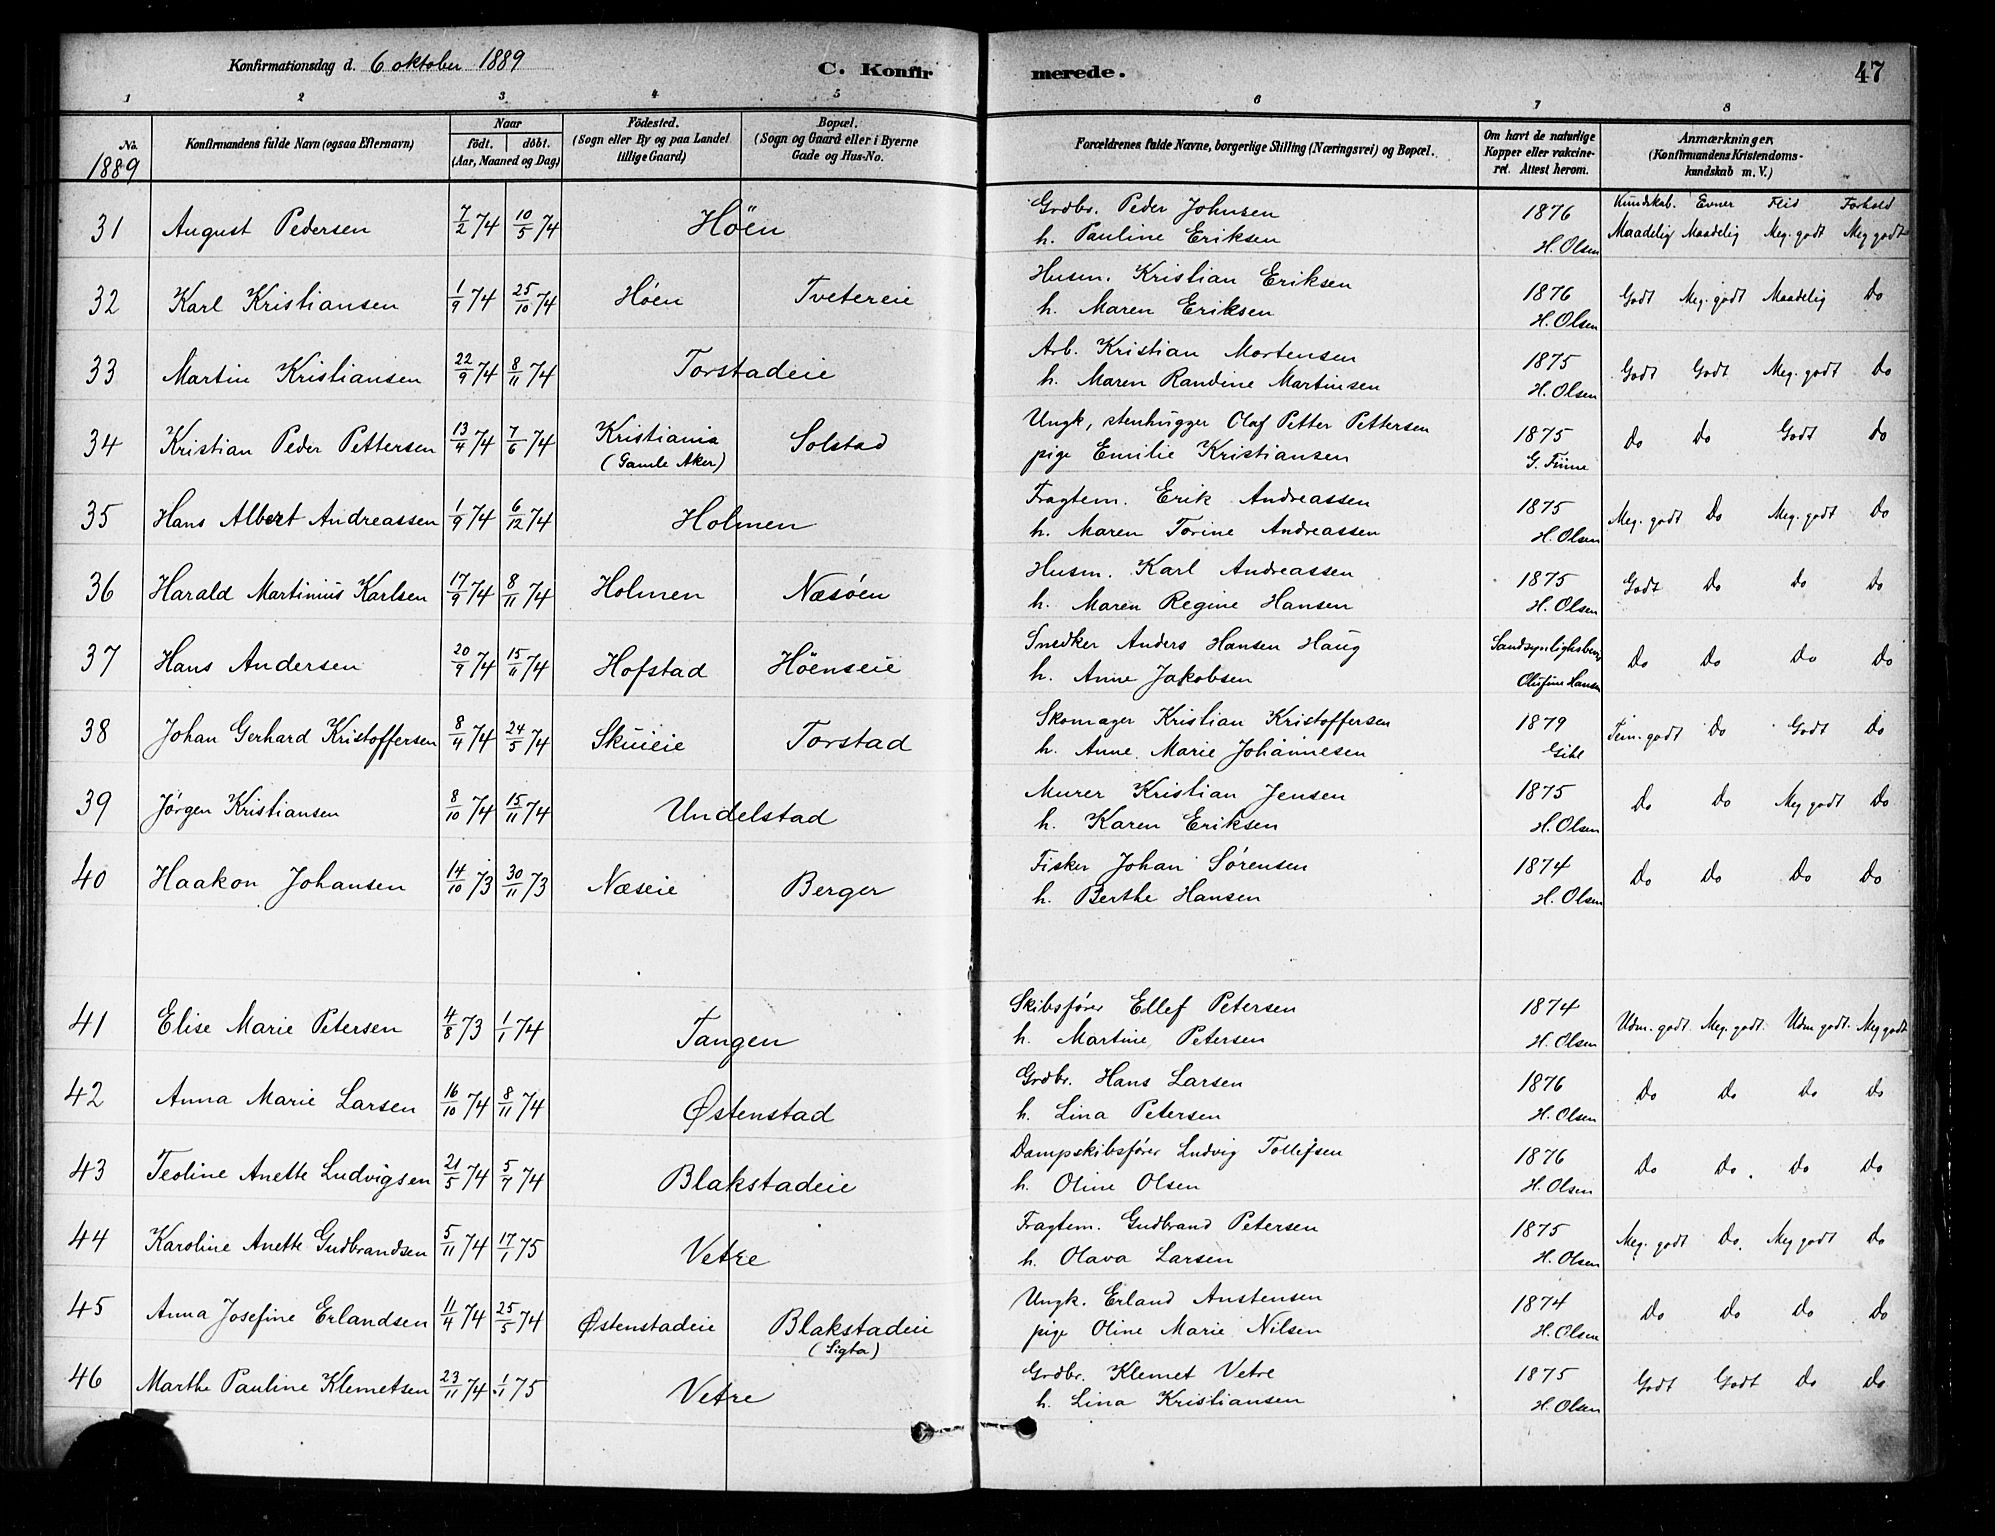 Konfirmationsdag d. 6 oktober 1889
C. Konfir merede.
47
1 2 3 4 5 6 7 8
No. 1889
Konfirmandens fulde Navn (ogsaa Efternavn)
Naar
födt. döbt.
(Aar, Maaned og Dag)
Födested.
(Sogn eller By og paa Landet
tillige Gaard)
Bopæl.
(Sogn og Gaard eller i Byerne
Gade og Hus-No.
Forældrenes fulde Navne, borgerlige Stilling (Næringsvei) og Bopæl.
Om havt de naturlige
Kopper eller vakcine-
ret. Attest herom.
Anmærkninger.
(Konfirmandens Kristendoms-
kundskab m. V.)
Kundskab. Evner Flid Forhold
31 August Pedersen 7/2 74 10/5 74 Höen Grdbr. Peder Johnsen 1876 Maadelig Maadelig Meg. godt Meg godt
h. Pauline Eriksen H. Olsen
32 Karl Kristiansen 1/9 74 25/10 74 Höen Tvetereie Husm. Kristian Eriksen 1876 Godt Meg. godt Maadelig Do
h. Maren Eriksen H. Olsen
33 Martin Kristiansen 22/9 74 8/11 74 Torstadeie Arb. Kristian Mortensen 1875 Godt Godt Meg. godt Do
h. Maren Randine Martinsen H. Olsen
34 Kristian Peder Pettersen 13/4 74 7/6 74 Kristiania Solstad Ungk, stenhugger Olaf Petter Pettersen 1875 Do Do Godt Do
(Gamle Aker) pige Emilie Kristiansen G. Finne
35 Hans Albert Andreassen 1/9 74 6/12 74 Holmen Fragtem. Erik Andreassen 1875 Meg. godt Do Meg. godt Do
h. Maren Torine Andreassen H. Olsen
36 Harald Martinius Karlsen 17/9 74 8/11 74 Holmen Næsøen Husm. Karl Andreassen 1875 Godt Do Do Do
h. Maren Regine Hansen H. Olsen
37 Hans Andersen 20/9 74 15/11 74 Hofstad Höenseie Snedker Anders Hansen Haug Sandsynlighsbev Do Do Do Do
h. Anne Jakobsen Olufine Hansen
38 Johan Gerhard Kristoffersen 8/4 74 24/5 74 Skuieie Torstad Skomager Kristian Kristoffersen 1879 Tem. godt Do Godt Do
h. Anne Marie Johannesen Gihl
39 Jørgen Kristiansen 8/10 74 15/11 74 Undelstad Murer Kristian Jensen 1875 Do Do Meg godt Do
h. Karen Eriksen H. Olsen
40 Haakon Johansen 14/10 73 30/11 73 Næseie Berger Fisker Johan Sørensen 1874 Do Do Do Do
h. Berthe Hansen H. Olsen
41 Elise Marie Petersen 4/8 73 1/1 74 Tangen Skibsfører Ellef Petersen 1874 Udm. godt. Meg. godt. Udm godt. Meg godt
h. Martine Petersen H. Olsen
42 Anna Marie Larsen 16/10 74 8/11 74 Østenstad Grdbr. Hans Larsen 1876 Do Do Do Do
h. Lina Petersen H. Olsen
43 Teoline Anette Ludvigsen 21/5 74 5/7 74 Blakstadeie Dampskibsfører Ludvig Tollefsen 1876 Do Do. Do Do
h. Oline Olsen H. Olsen
44 Karoline Anette Gudbrandsen 5/11 74 17/1 75 Vetre Fragtem. Gudbrand Petersen 1875 Meg. godt Do. Meg godt Do
h. Olava Larsen H. Olsen
45 Anna Josefine Erlandsen 11/4 74 25/5 74 Østenstadeie Blakstadeie Ungk. Erland Anstensen 1874 Do Do Do Do
(Sigta) pige Oline Marie Nilsen H. Olsen
46 Marthe Pauline Klemetsen 23/11 74 1/1 75 Vetre Grdbr. Klemet Vetre 1875 Godt Godt Do Do
h. Lina Kristiansen H. Olsen